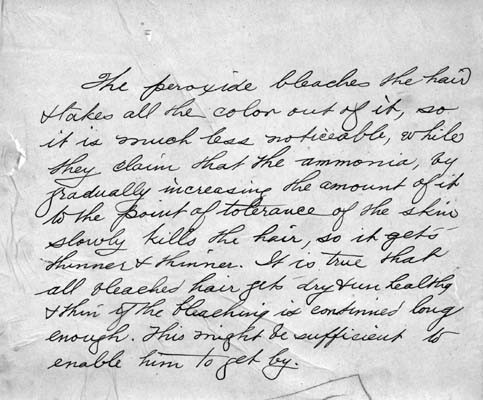 The peroxide bleaches the hair
& takes all the color out of it, so
it is much less noticeable, while
they claim that the ammonia, by
gradually increasing the amount of it
to the point of tolerance of the skin
slowly kills the hair, so it gets
thinner & thinner. It is true that
all bleached hair gets dry & unhealthy
& thin if the bleaching is continued long
enough. This might be sufficient to
enable him to get by.